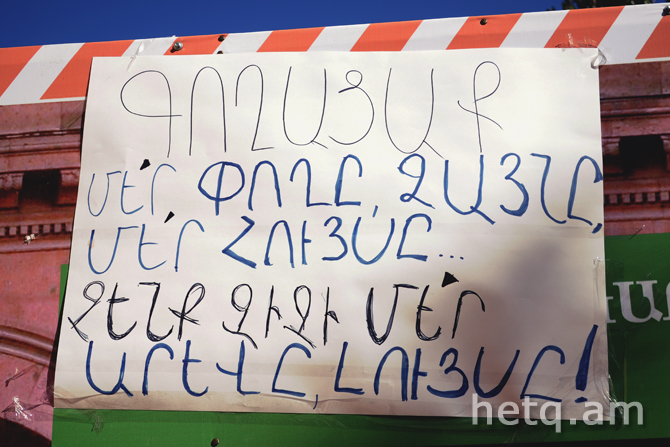 ԳՈՂԱՑԱՔ
ՄԵ՛Ր ՓՈՂԸ, ՁԱՅՆԸ,
ՄԵ՛Ր ՀՈՒՅՍԸ...
ՉԵՆՔ ԶԻՋԻ ՄԵ՛Ր
ԱՐԵՎԸ, ԼՈՒՅՍԸ!
hetq.am